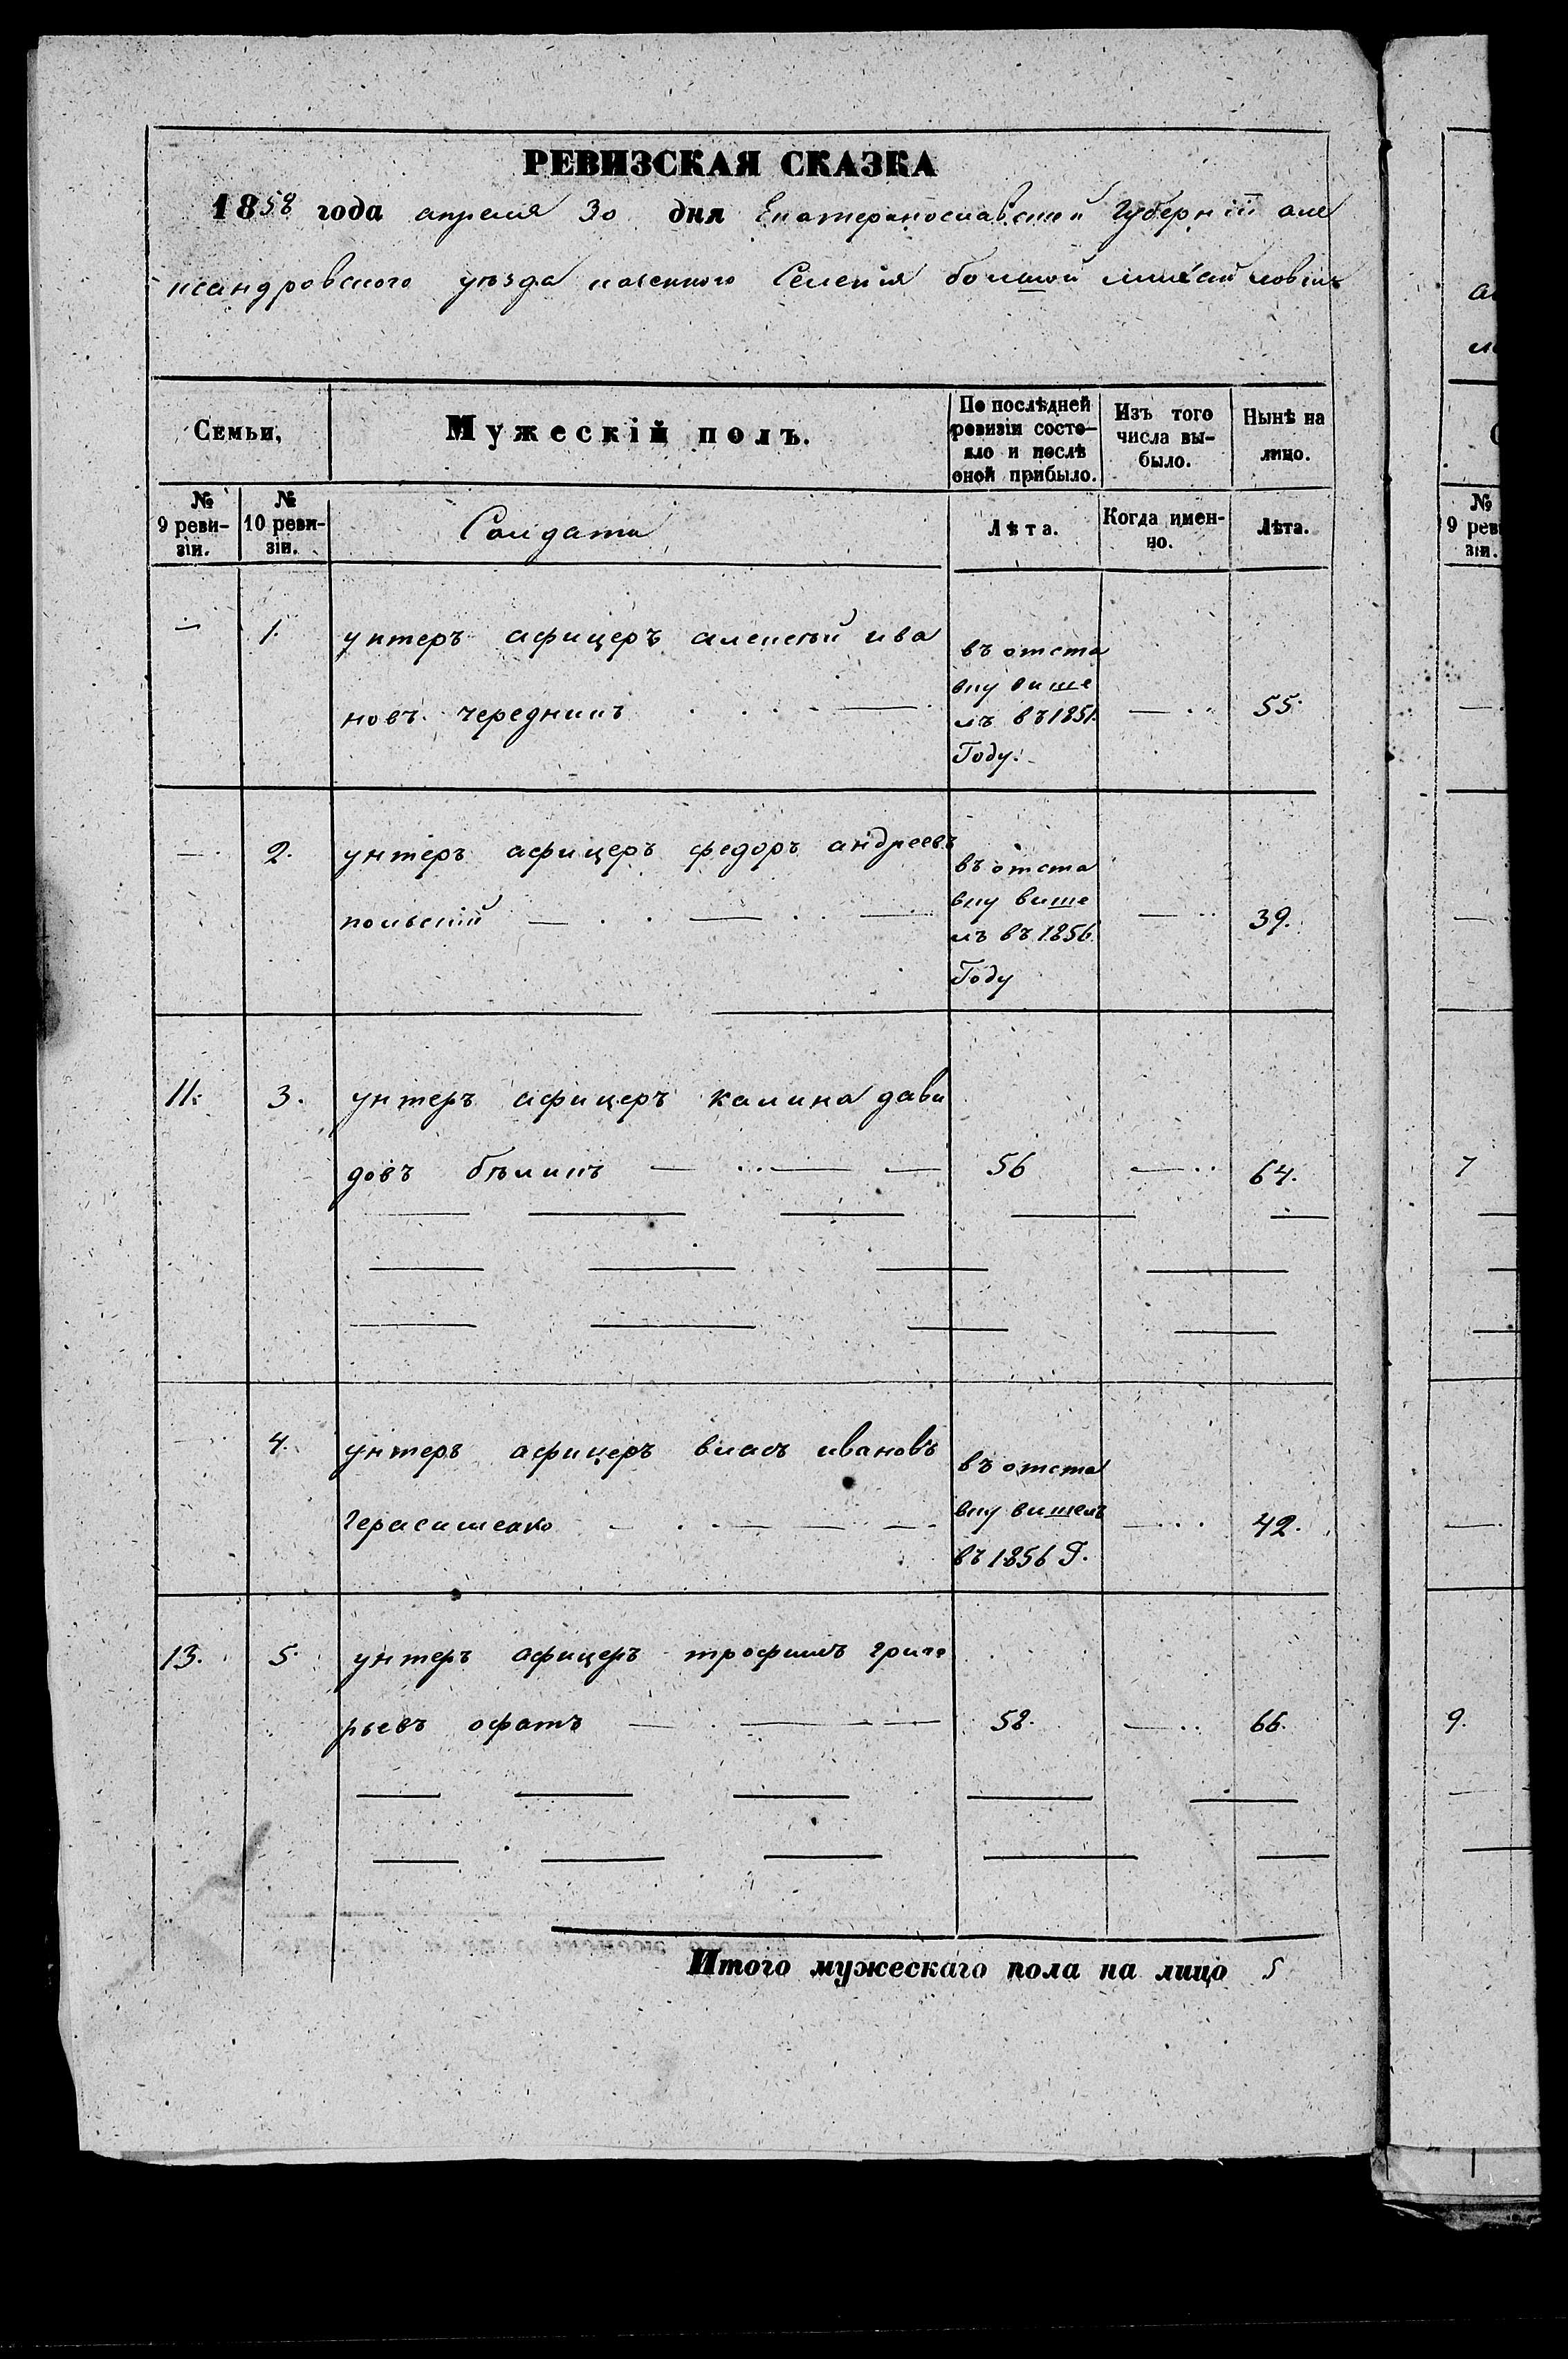 РЕВИЗСКАЯ СКАЗКА
1858 года апреля 30 дня Екатеринославской Губерніи але
ксандровского уѣзда казенного Селенія большой михайловки
Семьи,
Мужескій полъ.
По послѣдней ревизіи состо-
яло и послѣ оной прибыло.
Изъ того числа вы-
было.
Нынѣ на лицо.
№ 9 реви-
зіи.
№ 10 реви-
зіи.
Солдати
Лѣта.
Когда имен-
но.
Лѣта.
— 1. унтеръ афицеръ алексѣй ива
новъ чередникъ
въ отста
вку више
лъ въ 1851.
Году.
55.
— 2. унтеръ афицеръ федоръ андреевъ
польскій
въ отста
вку више
лъ въ 1856.
Году
39.
11. 3. унтеръ афицеръ калина дави
довъ бѣликъ — 56 — 64.
— 4. унтеръ афицеръ власъ ивановъ
Герасименко
въ отста
вку вишелъ
въ 1856 Г.
42.
13. 5. унтеръ афицеръ трофимъ григо
рьевъ офатъ — 58. — 66.
Итого мужескаго пола на лицо 5
№
9 рев
зіи.
7
9.